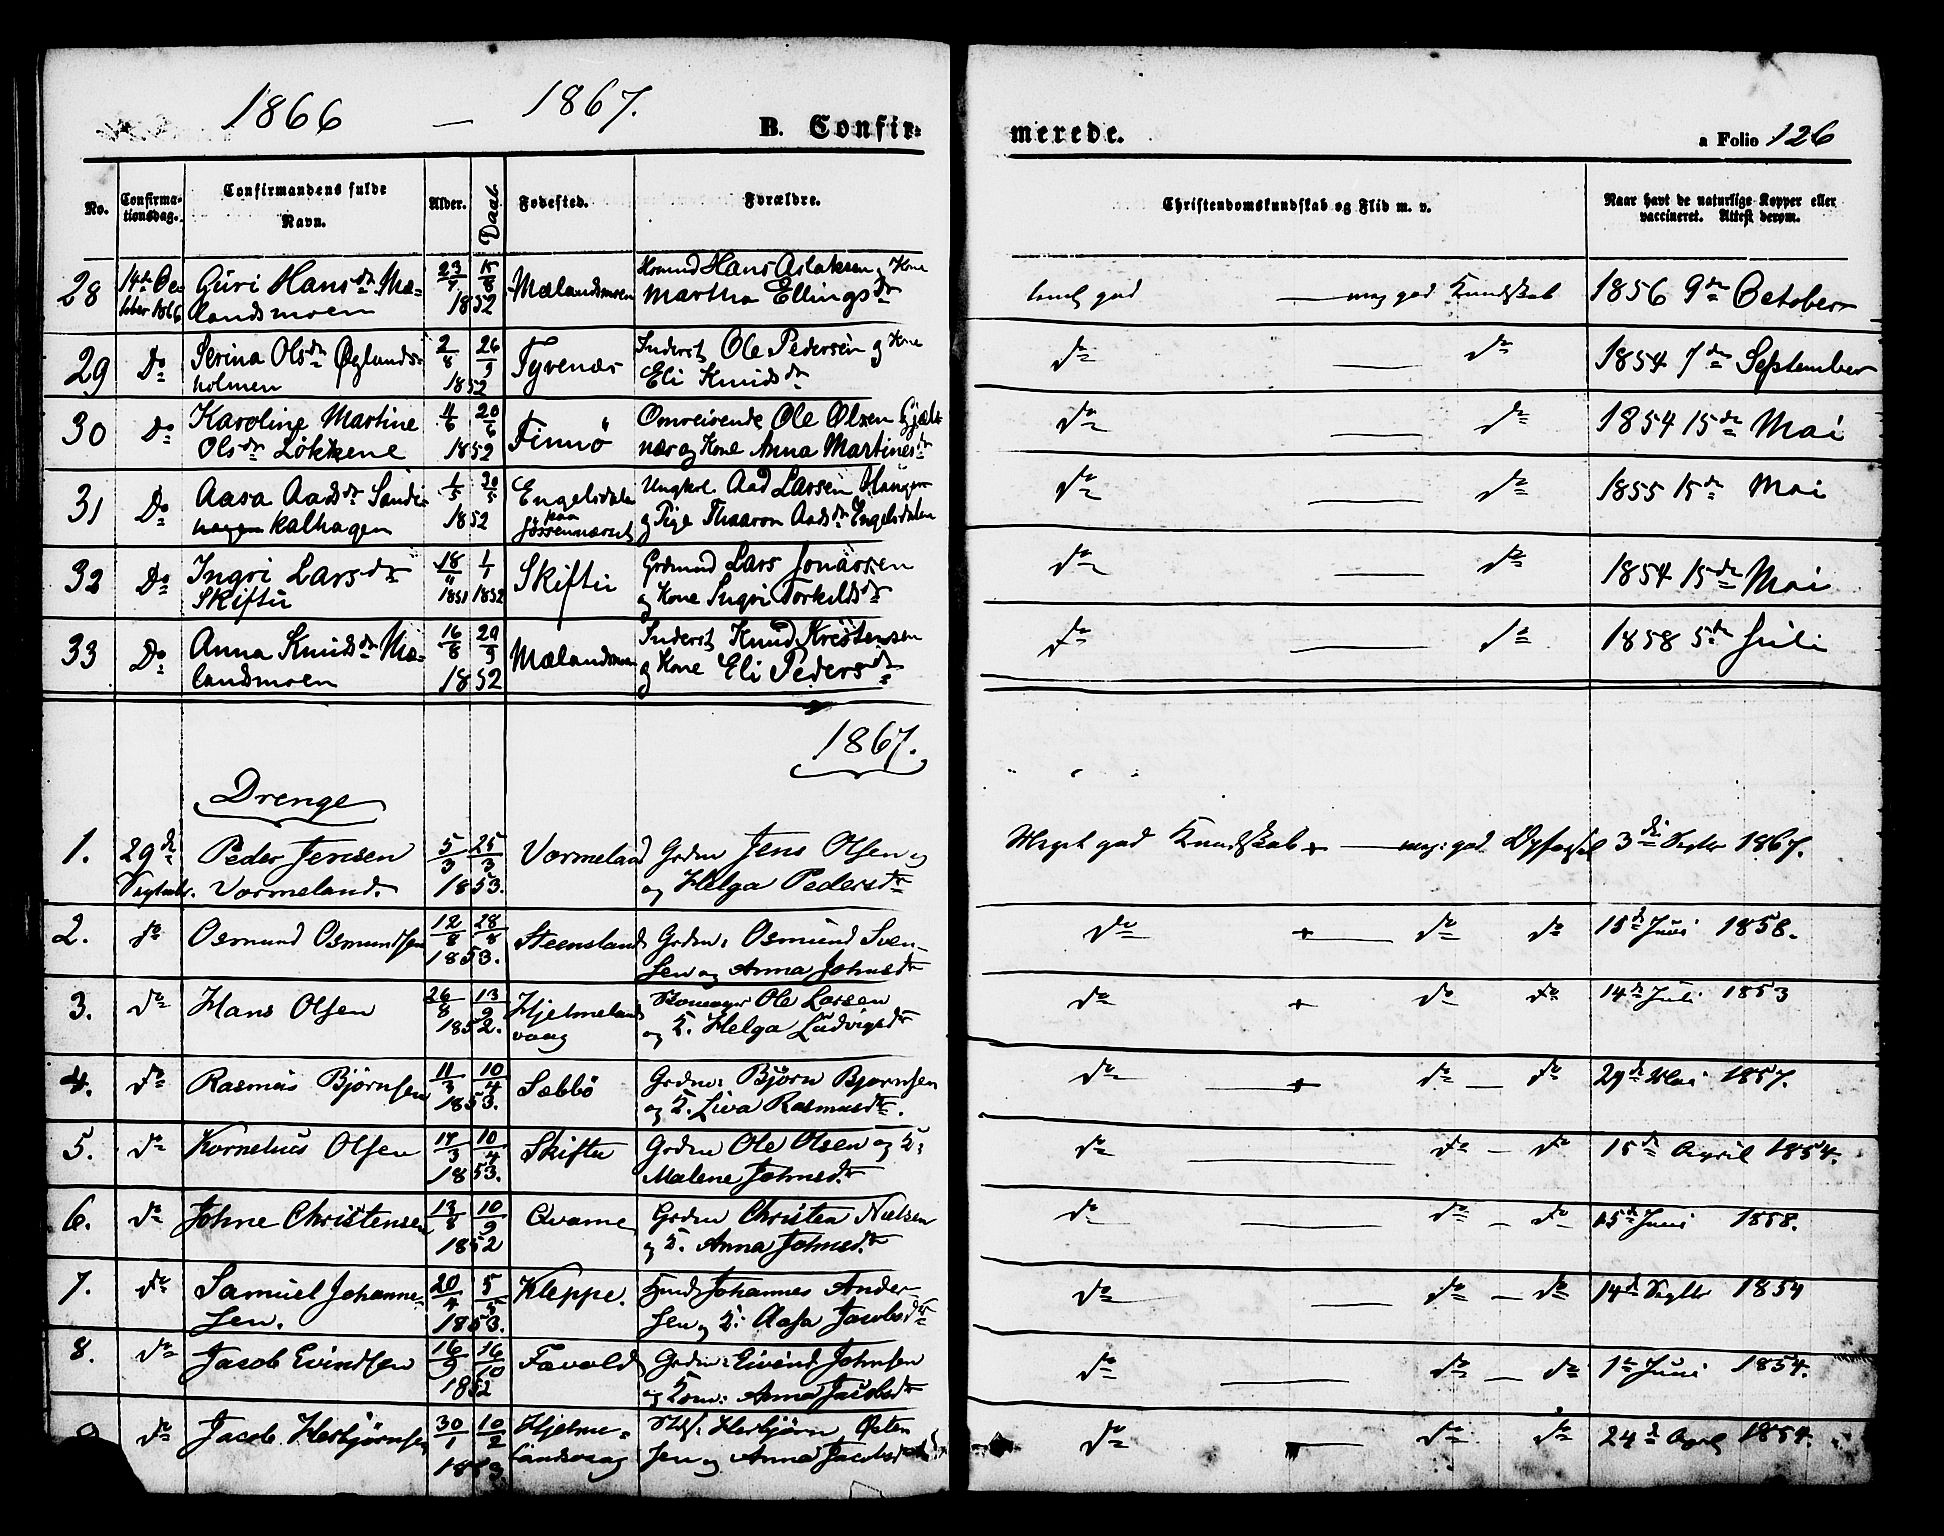 1866 — 1867.
B. Confirmerede.
a Folio 126
No. Confirmationsdag. Confirmandens fulde Navn. Alder. Daab Fødested. Forældre. Christendomskundskab og Flid m. v. Naar havt de naturlige Kopper eller vaccineret. Attest derom.
28 14de October 1866 Guri Hansdr Mælandsmoen 23/7 15/8 1852 Mælandsmoen Hans Aslaksen og Kone Martha Ellingsdr god meg god Kundskab 1856 9de October
29 Do Serina Olsdr Øglandsholmen 2/8 26/9 1852 Fyrenæs Inderst Ole Pedersen og Kone Eli Knudsdr do — do 1854 7de September
30 Do Karoline Martine Olsdr Løkkene 4/6 20/6 1852 Finnø Omreisende Ole Olsen og Kone Anna Martinesdr do — do 1854 15de Mai
31 Do Aasa Aadsdr Sandekalhagen 1/5 20/5 1852 Engelsdalen paa Jøssennæsset Ungkrl Aad Larsen Hauge og Pige Thaaron Aadsdr Engelsdalen do — do 1855 15de Mai
32 Do Ingri Larsdr Skiftu 18/11 1851 1/1 1852 Skiftu Grdmnd Lars Jonassen og Kone Ingri Torkildsdr do — do 1854 15de Mai
33 Do Anna Knudsdr Mælandsmoen 16/8 29/9 1852 Mælandsmoen Inderst Knud Kristensen og Kone Eli Pedersdr do — do 1858 5de Juli
1867.
Drenge
1. 29de Septembr. Peder Jensen Vormeland. 5/3 25/3 1853. Vormeland Grdm Jens Olsen og og Helga Pedersdr Meget god Kundskab + — meg: god Opførsel 3die Septbr 1867.
2. do Osmund Osmundsen 12/8 28/8 1853. Steensland Grdm: Osmund Svensen og Anna Johnsdr do + — do do 15de Juni 1858.
3. do Hans Olsen 26/8 13/9 1852. Hjelmelandsvaag Ole Larsen og K. Helga Ludvigsdr do + do do 14de Juli 1853
4. do Rasmus Bjørnsen 11/3 10/4 1853. Sæbbø Grdm: Bjørn Bjørnsen og K. Liva Rasmusdr. do + do — do 29de Mai 1857.
5. do Kornelius Olsen 17/3 10/4 1853. Skiftu Grdm Ole Olsen og K: Malene Johnsdr do do — do 15de April 1854.
6. do Johne Christensen 13/8 10/9 1852 Qvame Grdm Christen Nielsen og K. Anna Johnsdr do — do — do 15de Juni 1858.
7. do Samuel Johannesen. 20/4 5/5 1853. Kleppe. Johannes Andersen og K: Aasa Jacobsdr do — do — do 14de Septbr 1854
8. do Jacob Evindsen 16/9 16/10 1852 Favold Grdm: Eivind Johnsen og Kone: Anna Jacobsdr do — do — do 1te Juni 1854.
9 do Jacob Herbjørnsen 30/1 10/2 1853 Hjelmelandsvaag Herbjørn Ostensen og Anna Jacobsdr do — do do 24de April 1854.